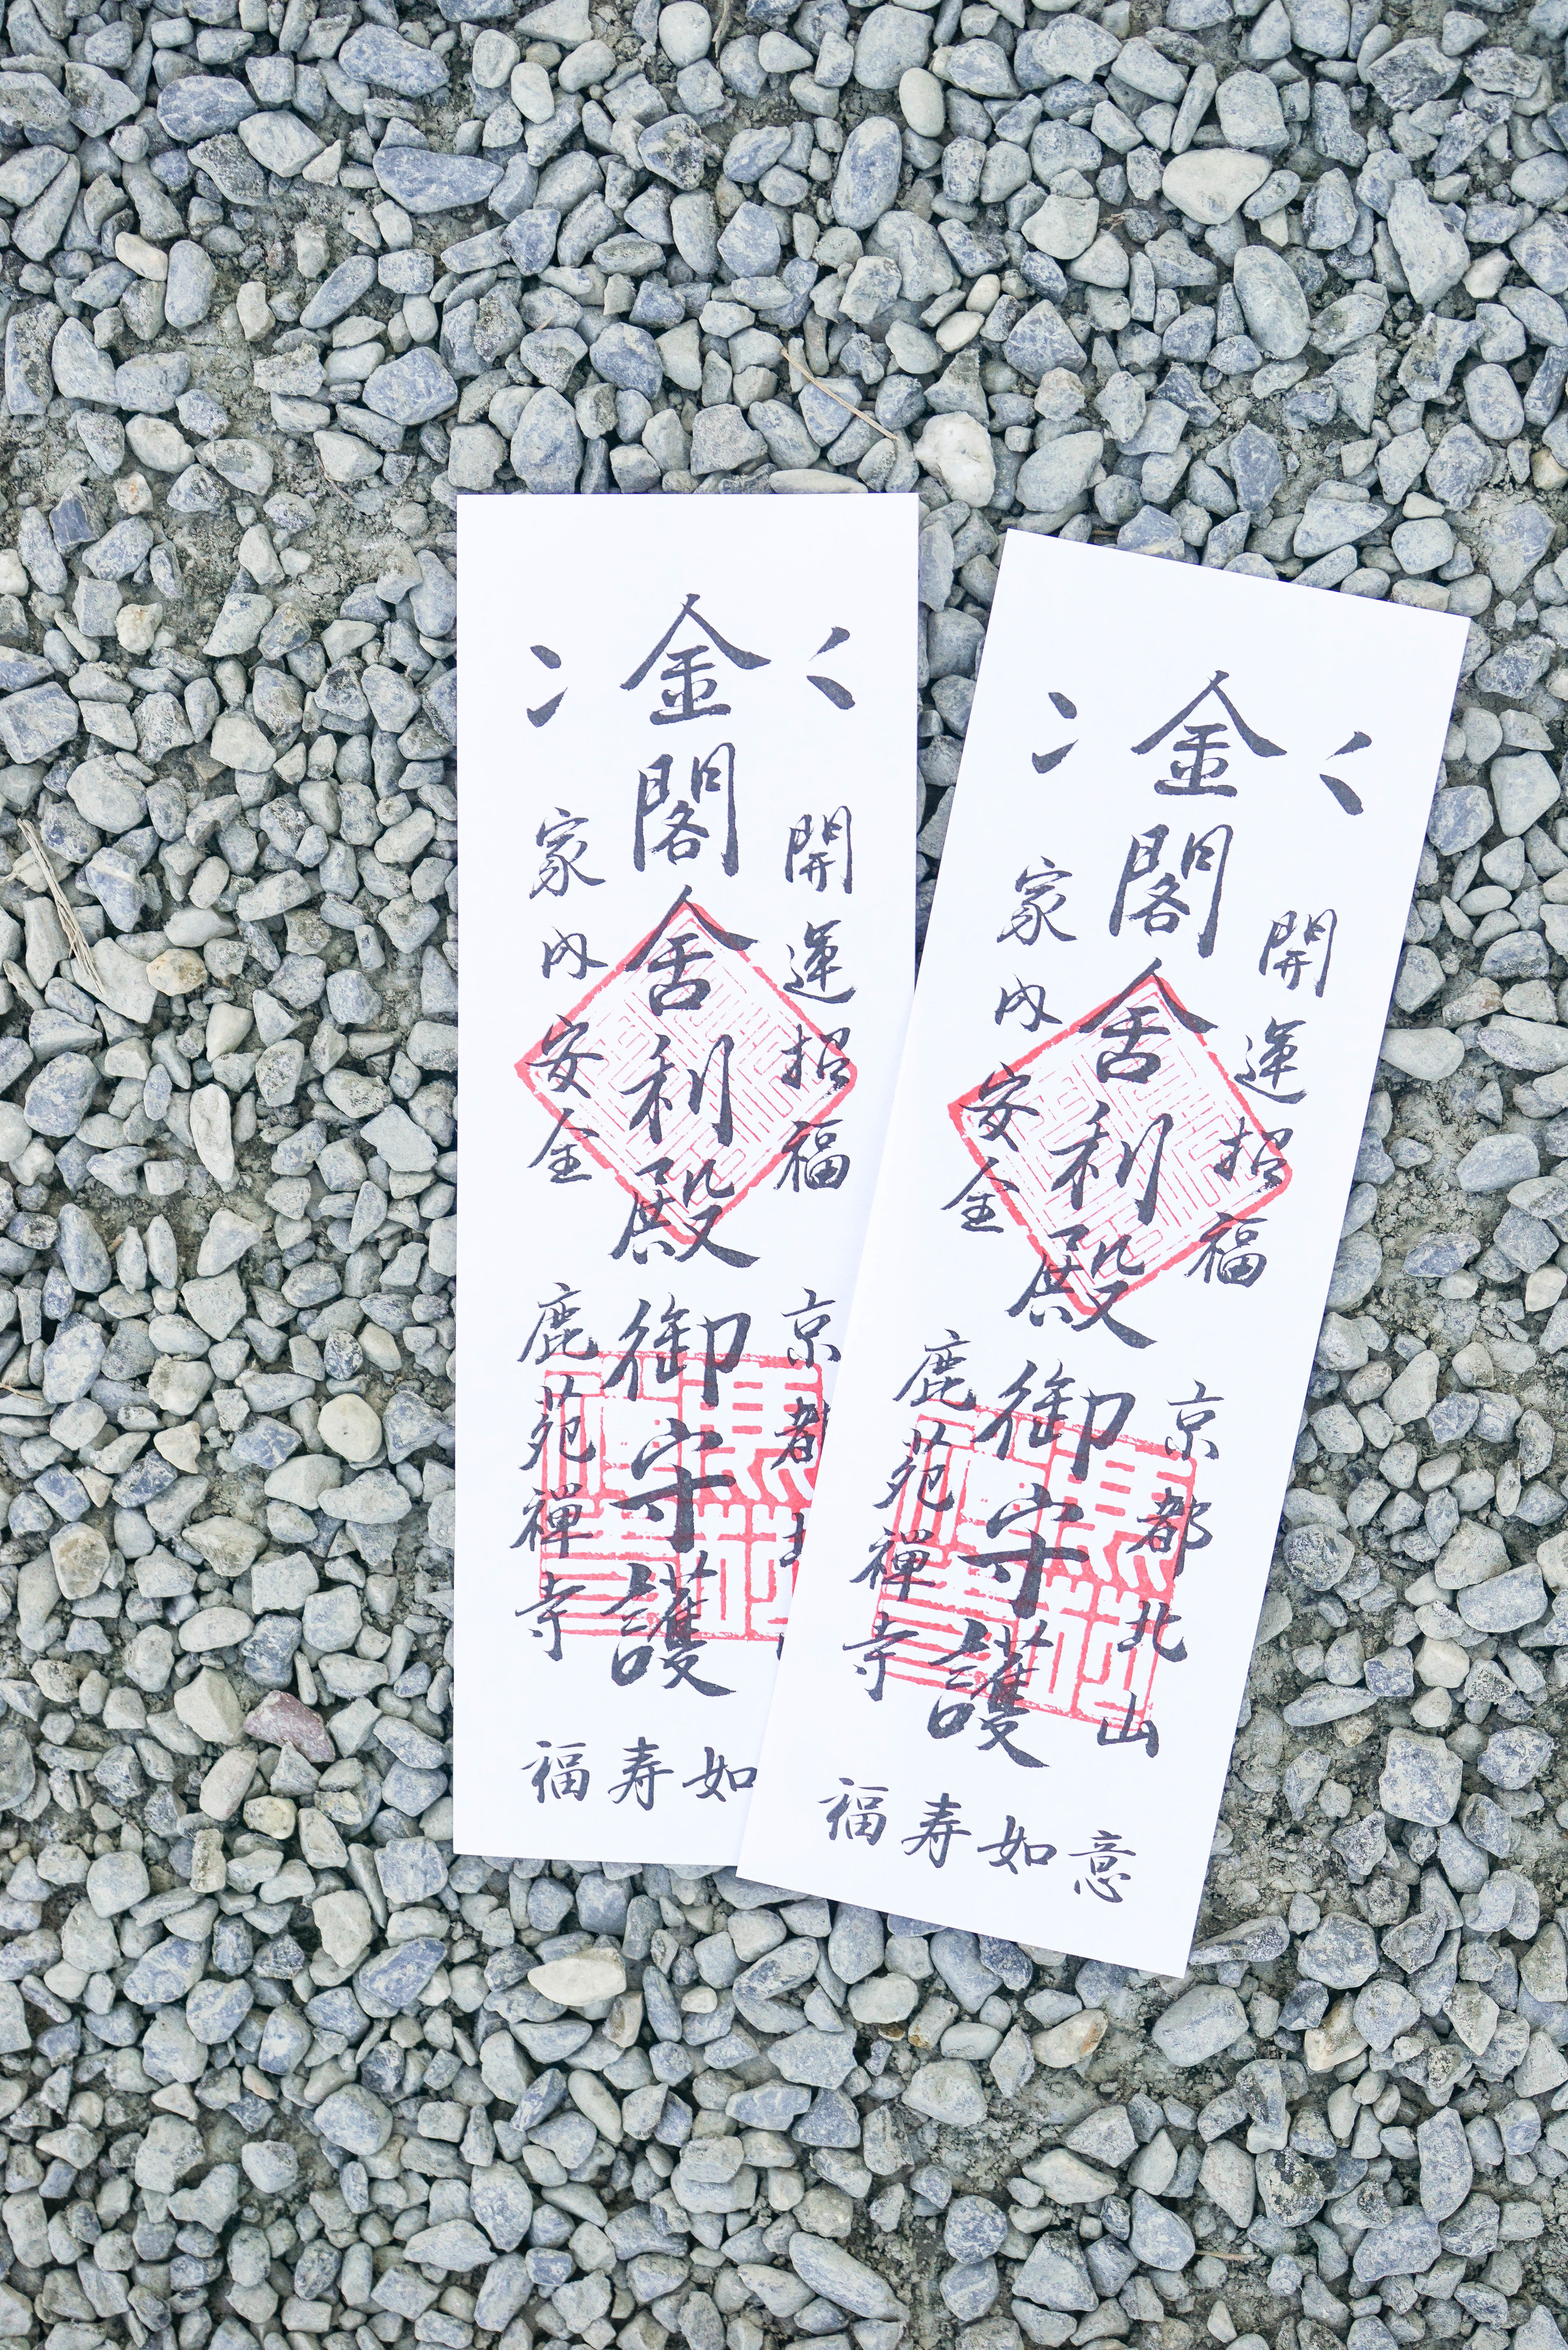 金閣舍利殿御守護
開運招福
家内安全
京都
鹿苑禅寺
福寿如
金閣舍利殿御守護
開運招福
家内安全
京都北山
鹿苑禅寺
福寿如意